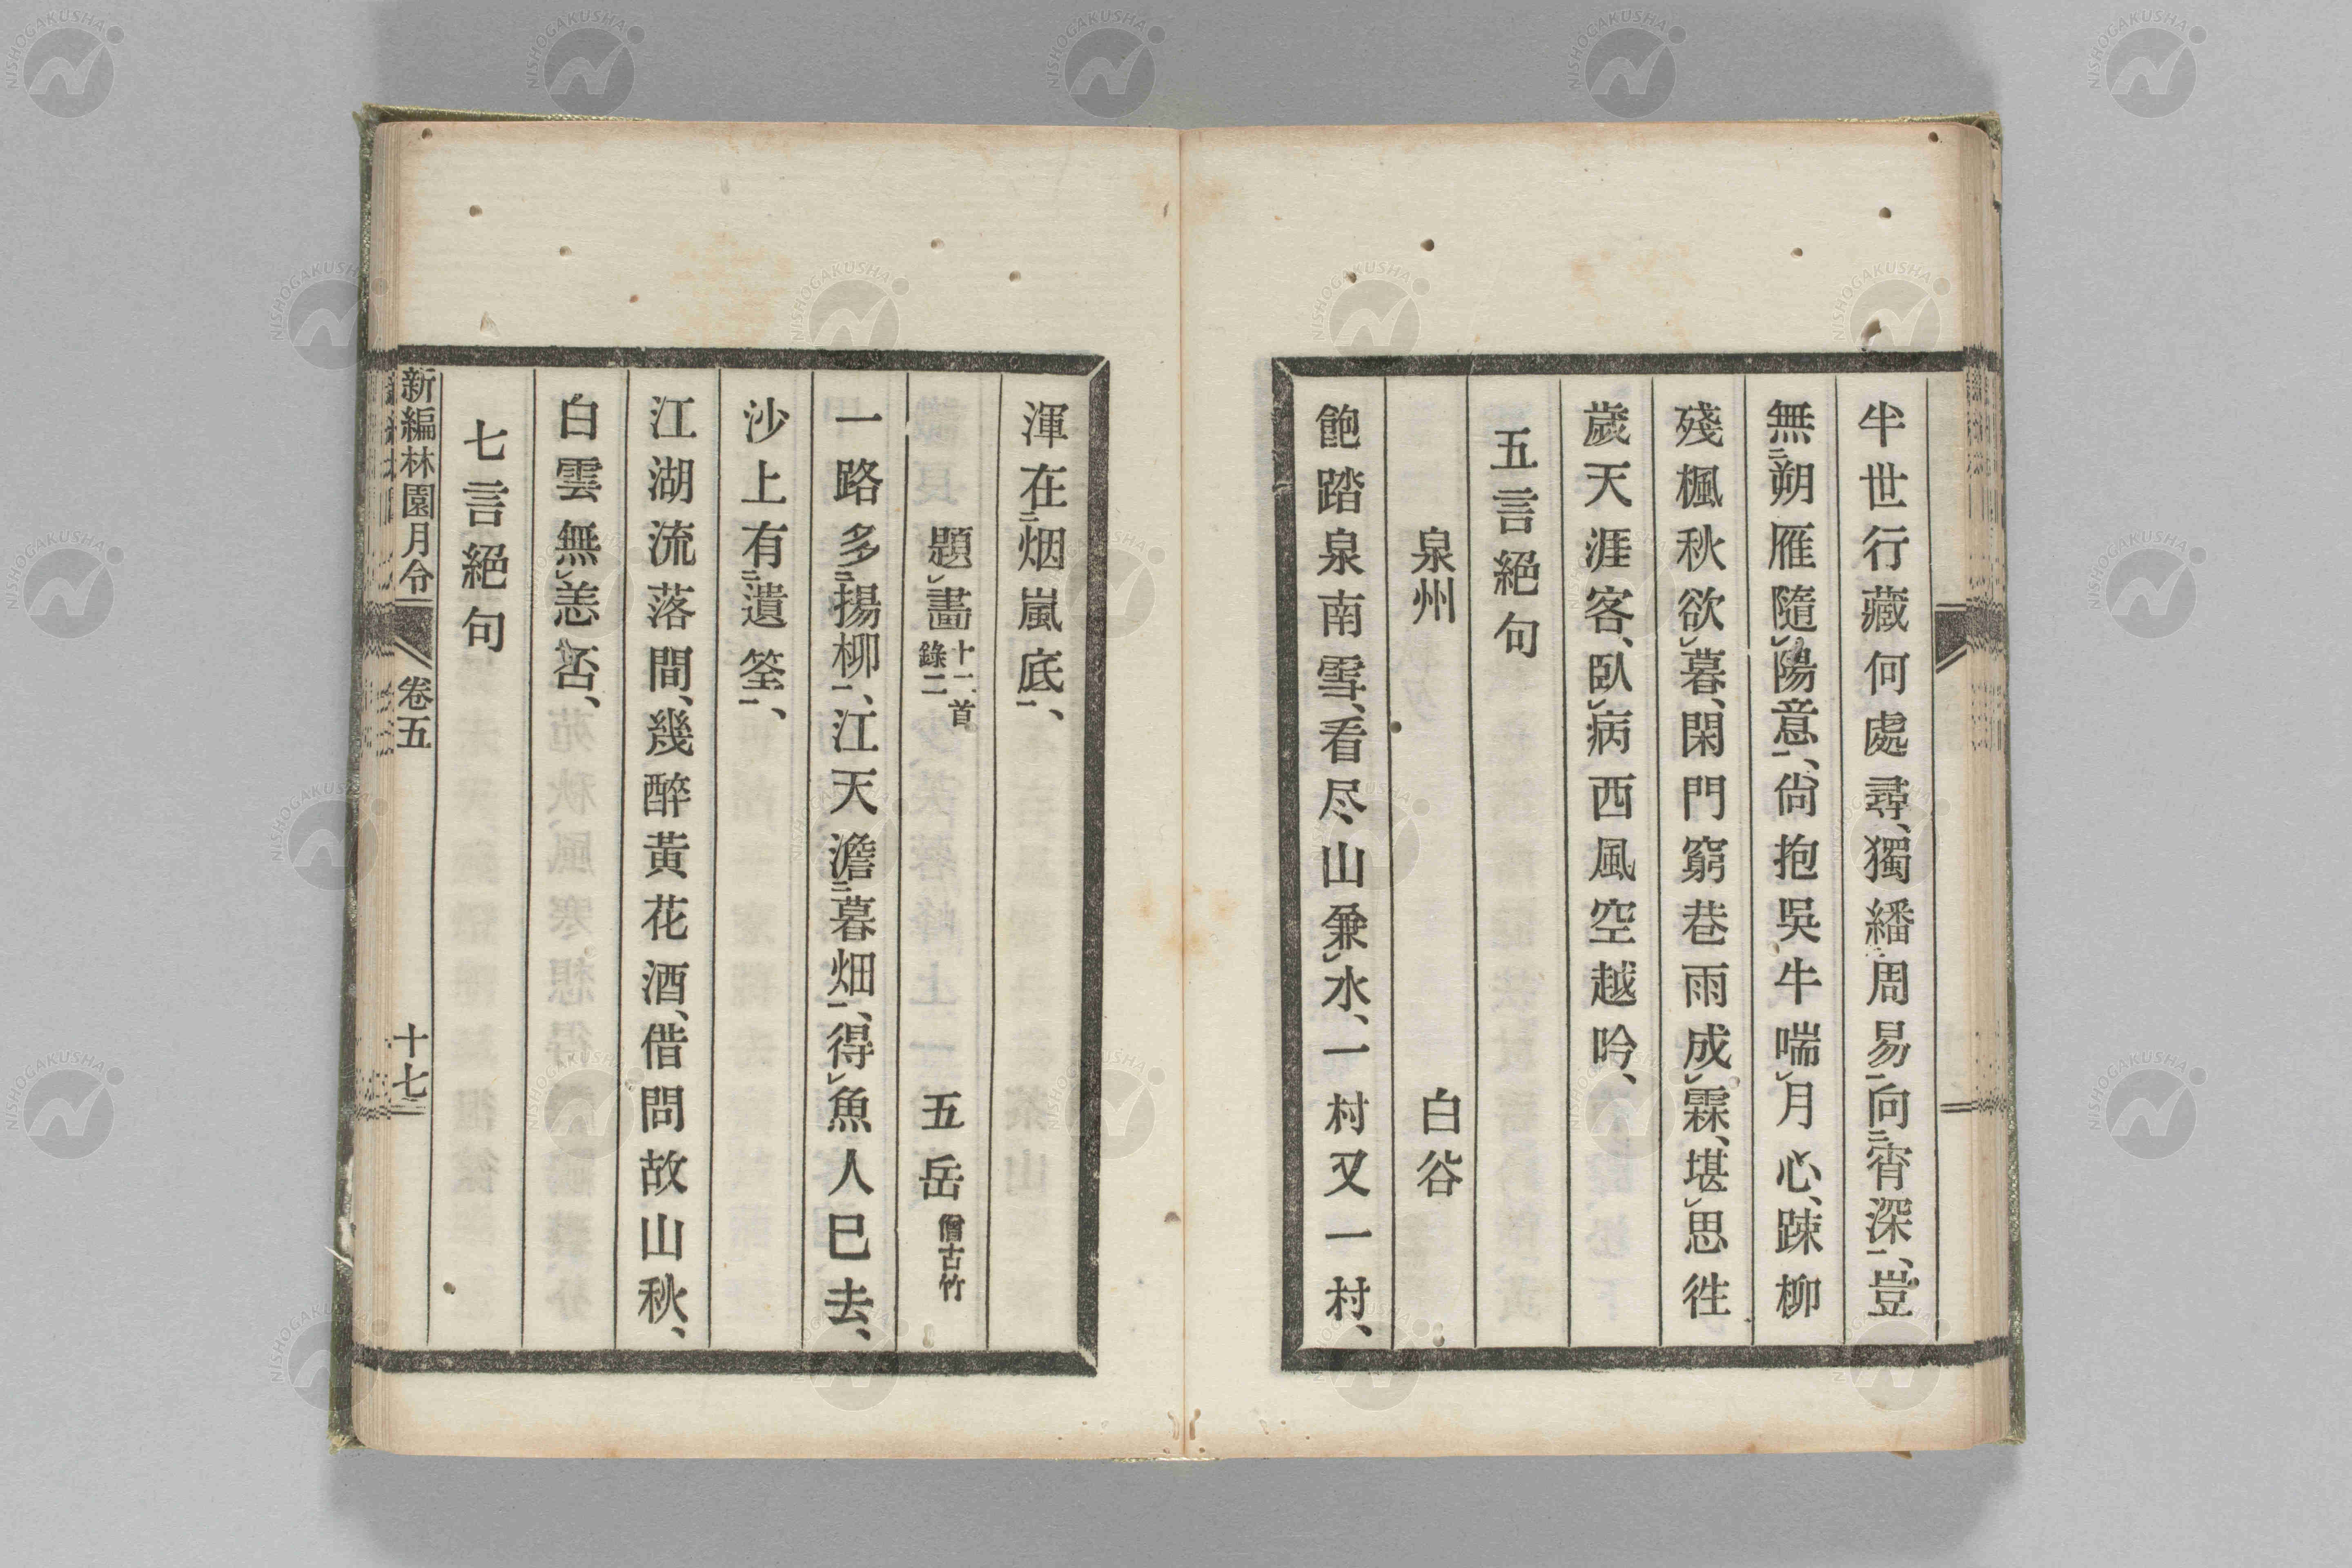 半世行藏何處尋、獨繙二周易一向二宵深一、豈
無二朔雁隨レ陽意一、尙抱吳牛喘レ月心、踈柳
殘楓秋欲レ暮、閑門窮巷雨成レ霖、堪レ思徃
歲天涯客、臥レ病西風空越吟、
五言絕句
泉州　白谷
飽踏泉南雪、看尽山兼レ水、一村又一村、
渾在二烟嵐底一、
題レ畵 十二首錄二　五岳 僧古竹
一路多二揚柳一、江天澹二暮畑一、得レ魚人巳去、
沙上有二遺筌一、
江湖流落間、幾醉黃花酒、借問故山秋、
白雲無レ恙否、
七言絕句
新編林園月令　卷五　十七